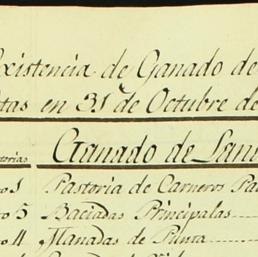 Existencia de Ganado de
tas en 31 de Octubre de
Ganado de Lan
torias
o 1 Pastoria de Carneros Pa
o 5 Baciadas Principalas
o 4 Manadas de Punta